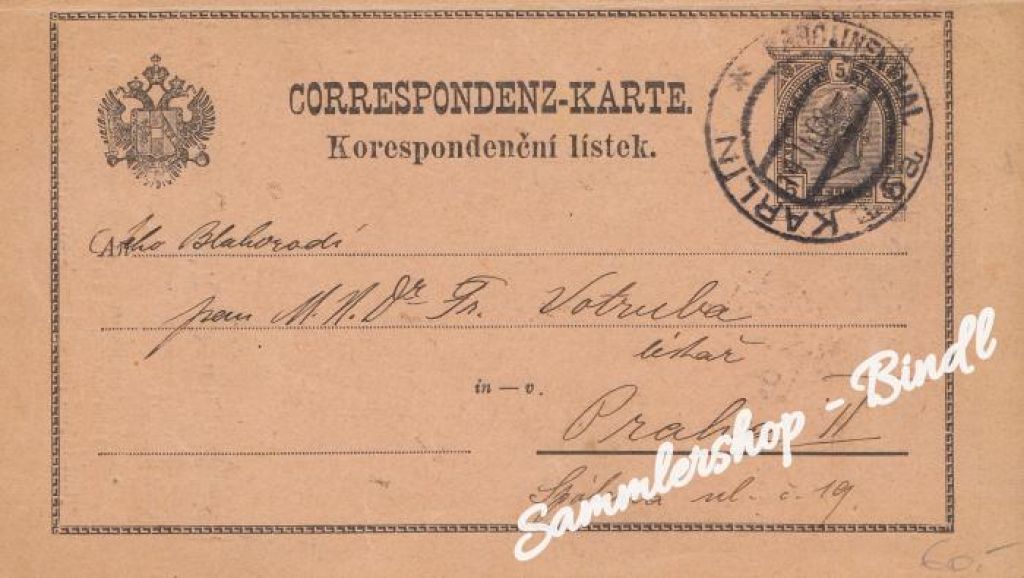 CORRESPONDENZ-KARTE.
Korespondenční lístek.
CAROLINENTHAL
KARLIN
5 5
(An) Jeho Blahorodí
pan M. U. Dr. Fr. Votruba
lékař
in — v.
Praha II
ul. č. 19.
Sammlershop - Bindl
60.-